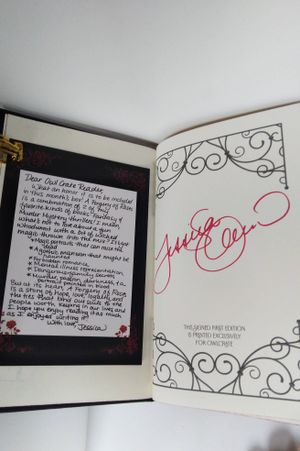 Dear Owl Crate Reader,
What an honor it is to be included
in this month's box! A Forgery of Roses
is a combination of 2 of my
favorite kinds of books: Fantasy &
Murder Mystery thrillers! I mean,
what's not to love about a
whodunnit with a bit of wicked
magic thrown into the mix? I
* Magic portraits that can
* A gothic mansion that might be
haunted
* Forbidden romance
* Mental illness representation
* Dangerous family secrets
* Murder, passion, darkness, & a
portrait painted in blood
But at its heart, A Forgery of Roses
is a story of hope, love, loyalty, and
the ties that bind our souls to the
people worth keeping in our lives and
I hope you enjoy reading it as much
as I enjoyed writing it!
With love,
Jessica
Jessica
THIS SIGNED FIRST EDITION
IS PRINTED EXCLUSIVELY
FOR OWLCRATE